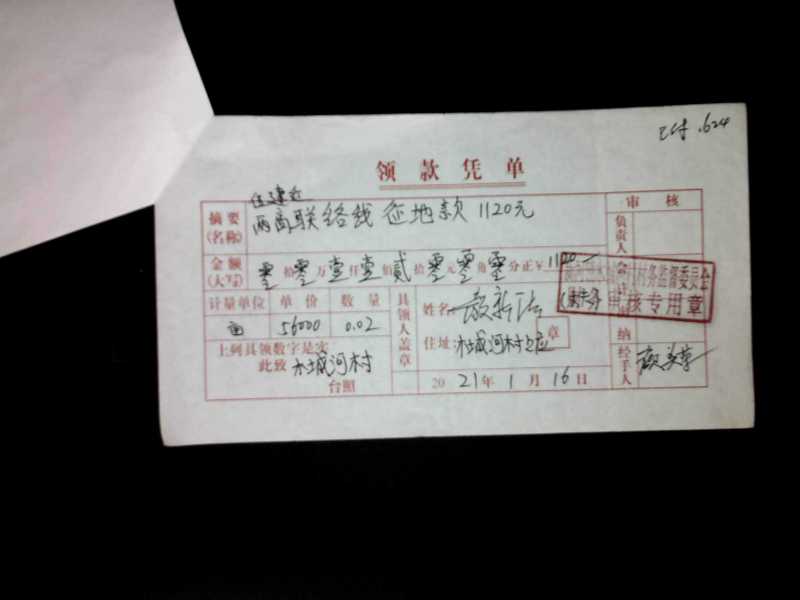 已付 .624
领款凭单
摘要(名称) 两高联络线征地款 1120元
审核
负责人
金额(大写) 零拾零万壹仟壹佰贰拾零元零角零分正 ¥1120.—
村务监督委员会
审核专用章
计量单位 单价 数量
亩 56000 0.02
具领人盖章
姓名
住址 水城河村 章
上列具领数字是实
此致 水城河村
台照
2021年1月16日
纳
经手人